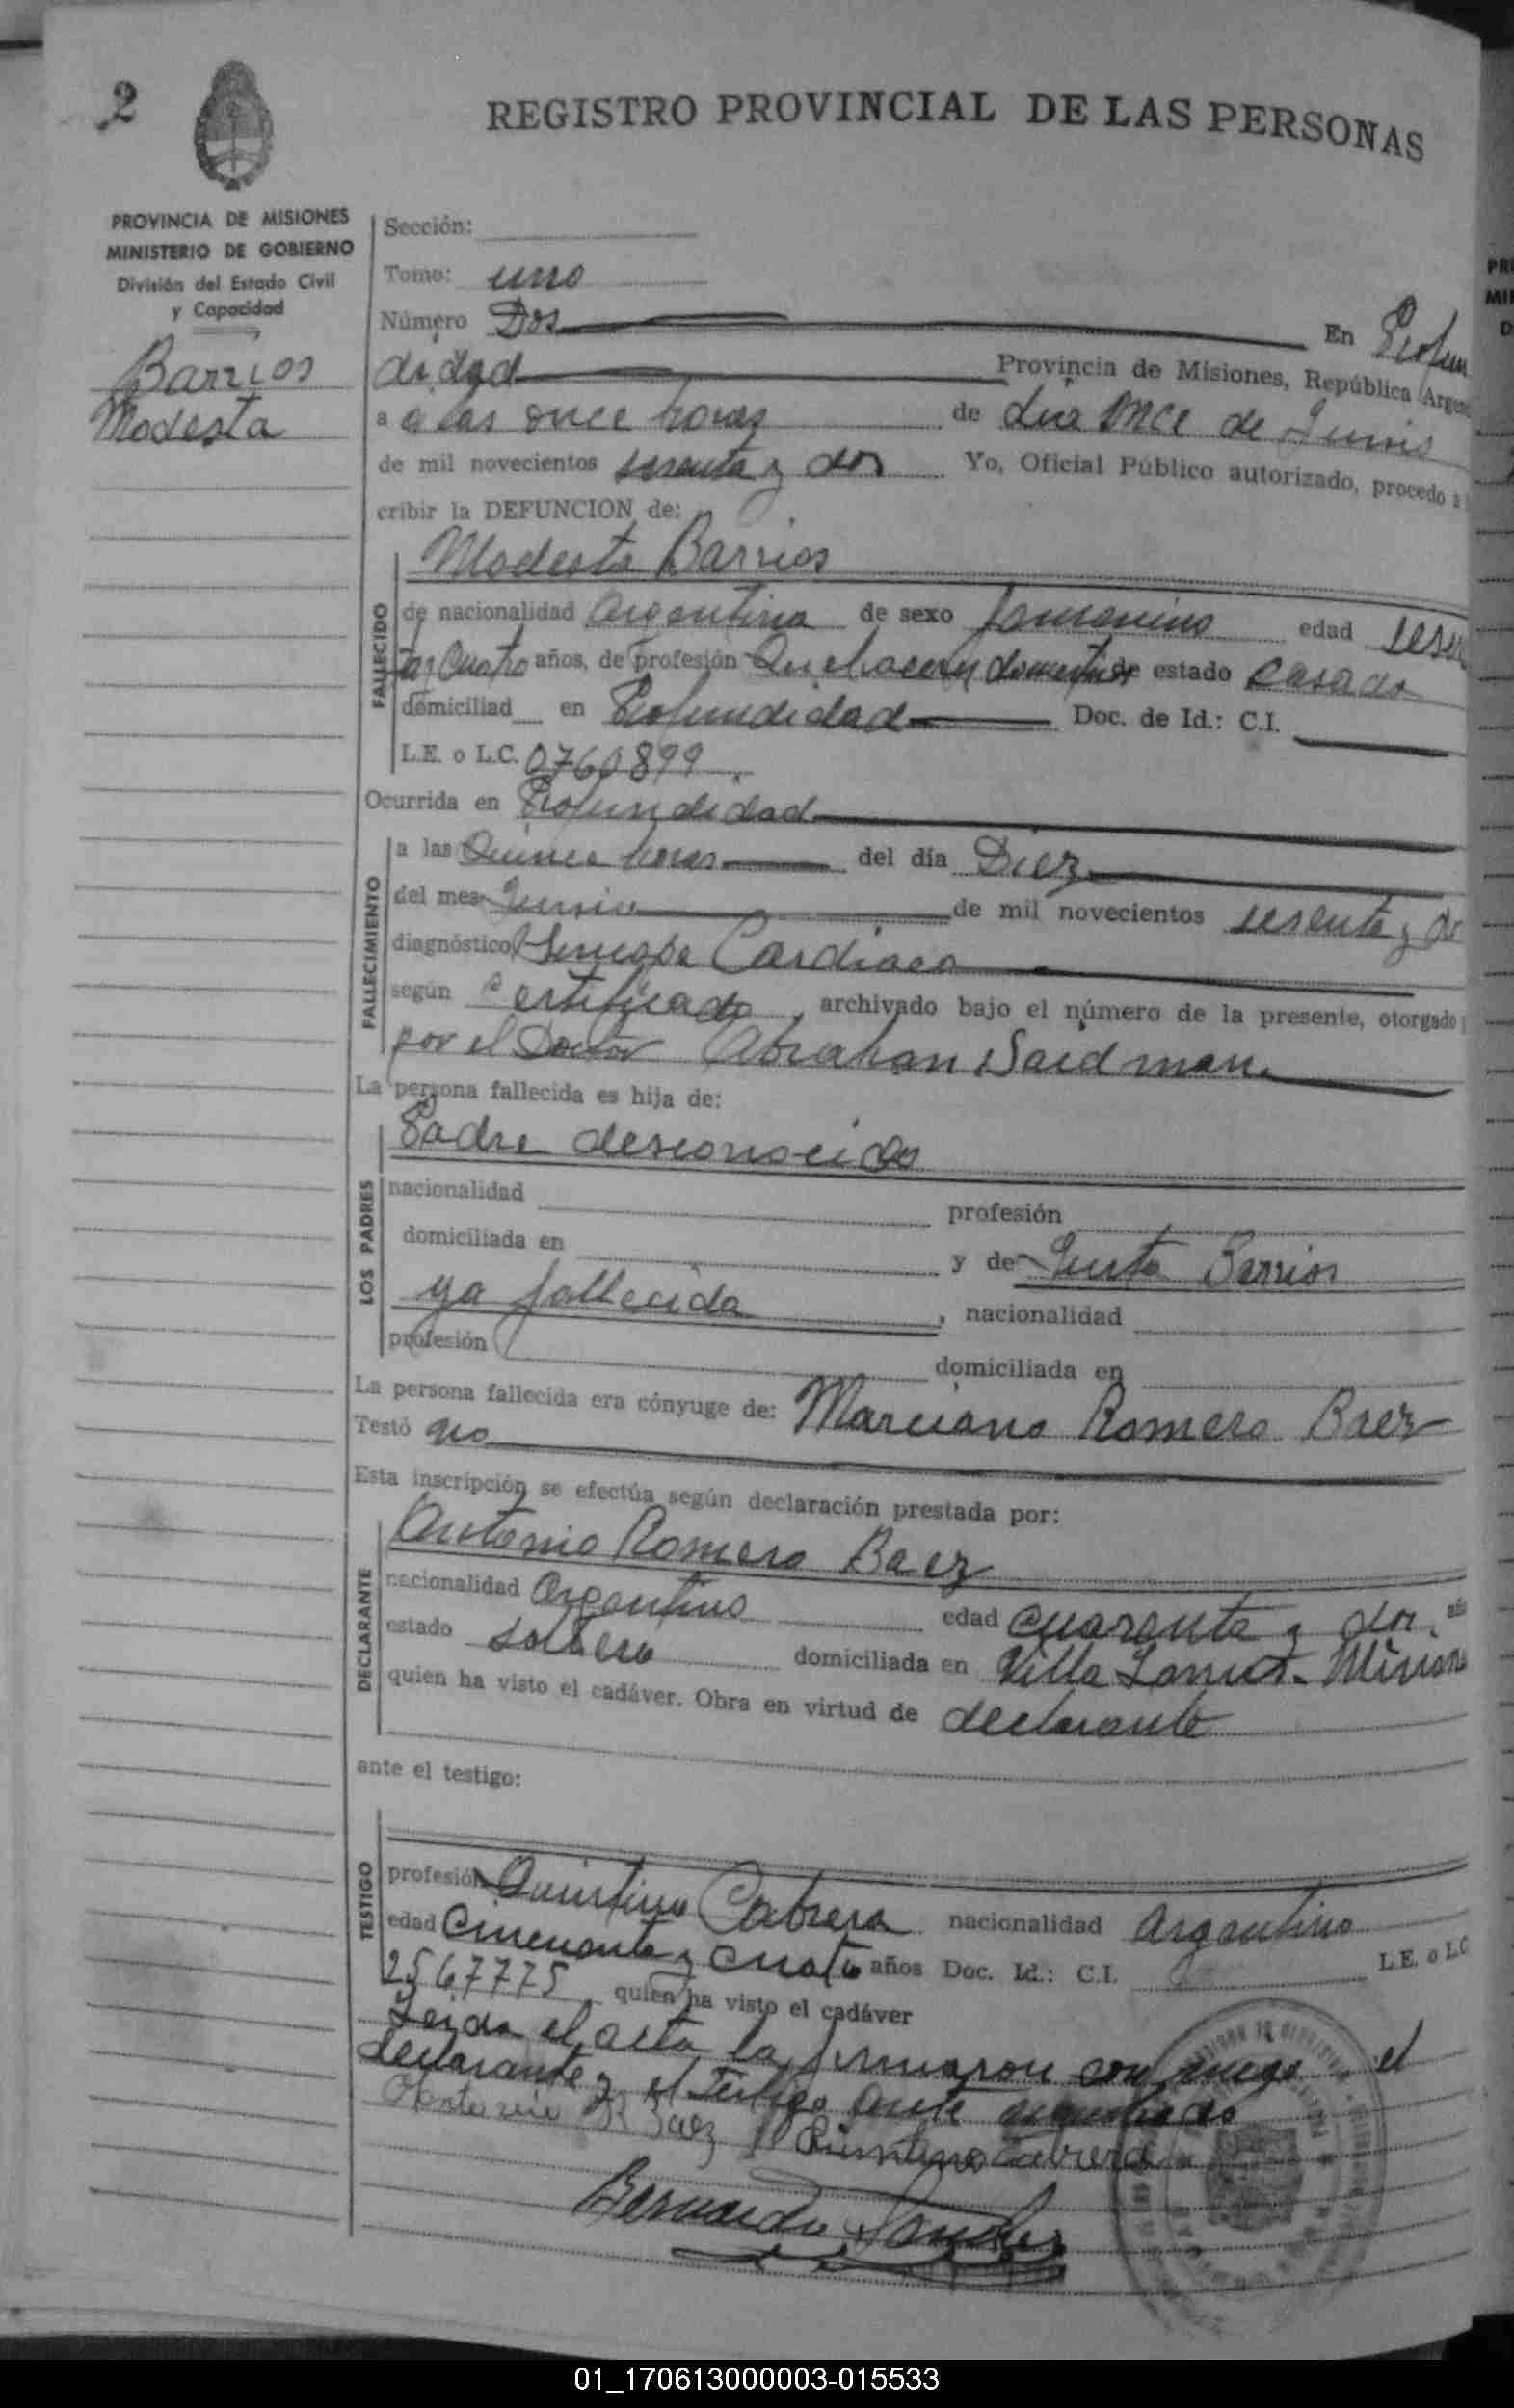 2
REGISTRO PROVINCIAL DE LAS PERSONAS
PROVINCIA DE MISIONES
MINISTERIO DE GOBIERNO
División del Estado Civil
y Capacidad
Barrios
Modesta
Sección:
Tomo: uno
Número Dos En Profun
didad Provincia de Misiones, República Argen
a a las once horas de dia once de Junio
de mil novecientos sesenta y dos Yo, Oficial Público autorizado, procedo a
cribir la DEFUNCION de:
Modesta Barrios
FALLECIDO
de nacionalidad Argentina de sexo femenino edad sesen
ta y Cuatro años, de profesión Quehaceres domesticos de estado casada
domiciliad en Profundidad Doc. de Id.: C.I.
L.E. o L.C. 0760899.
Ocurrida en Profundidad
FALLECIMIENTO
a las Quince horas del día Diez
del mes Junio de mil novecientos sesenta y do
diagnóstico Sincope Cardiaco
según Certificado, archivado bajo el número de la presente, otorgado
por el Doctor Abrahan Saidman
La persona fallecida es hija de:
Padre desconocido
LOS PADRES
nacionalidad profesión
domiciliada en y de Justa Barrios
ya fallecida, nacionalidad
profesión domiciliada en
La persona fallecida era cónyuge de: Marciano Romero Baez
Testó no
Esta inscripción se efectúa según declaración prestada por:
Antonio Romero Baez
DECLARANTE
nacionalidad Argentino edad cuarenta y dos
estado soltero domiciliada en Villa Misiones
quien ha visto el cadáver. Obra en virtud de declarante
ante el testigo:
TESTIGO
profesión Quintino Cabrera nacionalidad Argentino
edad Cincuenta y cuatro años Doc. Id.: C.I. L.E. o LC
2567775 quien ha visto el cadáver
Leida el acta la firmaron conmigo el
declarante y el testigo
Antonio R Baez Quintino Cabrera
Bernardo
01_170613000003-015533